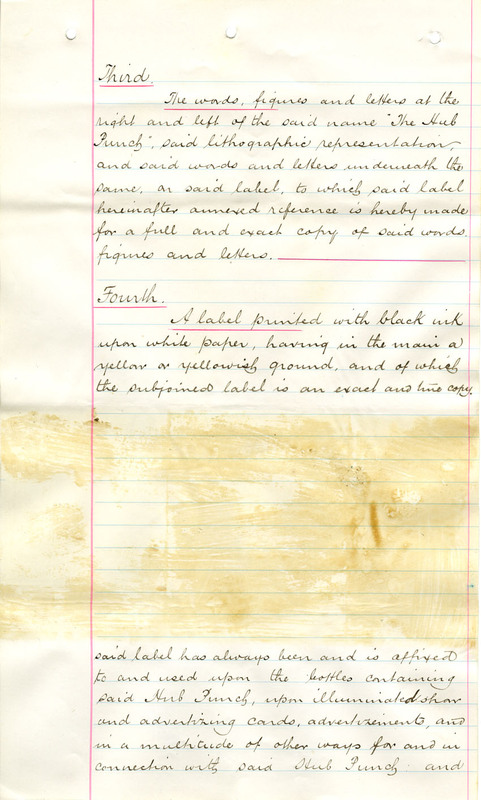 Third.
The words, figures and letters at the
right and left of the said name "The Hub
Punch", said lithographic representation,
and said words and letters underneath the
same, on said label, to which said label
hereinafter annexed reference is hereby made
for a full and exact copy of said words.
figures and letters.
Fourth.
A label printed with black ink
upon white paper, having in the main a
yellow or yellowish ground, and of which
the subjoined label is an exact and true copy.
said label has always been and is affixed
to and used upon the bottles containing
said Hub Punch, upon illuminated show
and advertizing cards, advertizements, and
in a multitude of other ways for and in
connection with said Hub Punch and